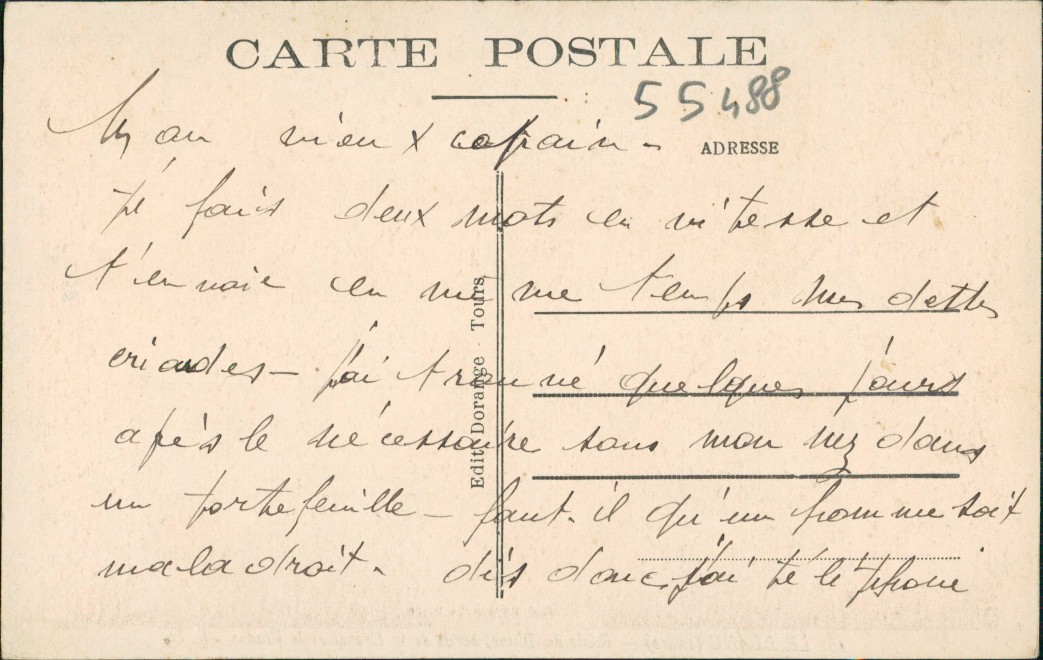 CARTE POSTALE
55488
Mon vieux copain -
ADRESSE
Je fais deux mots en vitesse et
t'envoie en même temps mes dettes
criardes - j'ai trouvé quelques jours
après le nécessaire sous mon nez dans
un portefeuille - faut-il qu'un homme soit
maladroit. dis donc j'ai téléphoné
Edit. Dorange - Tours